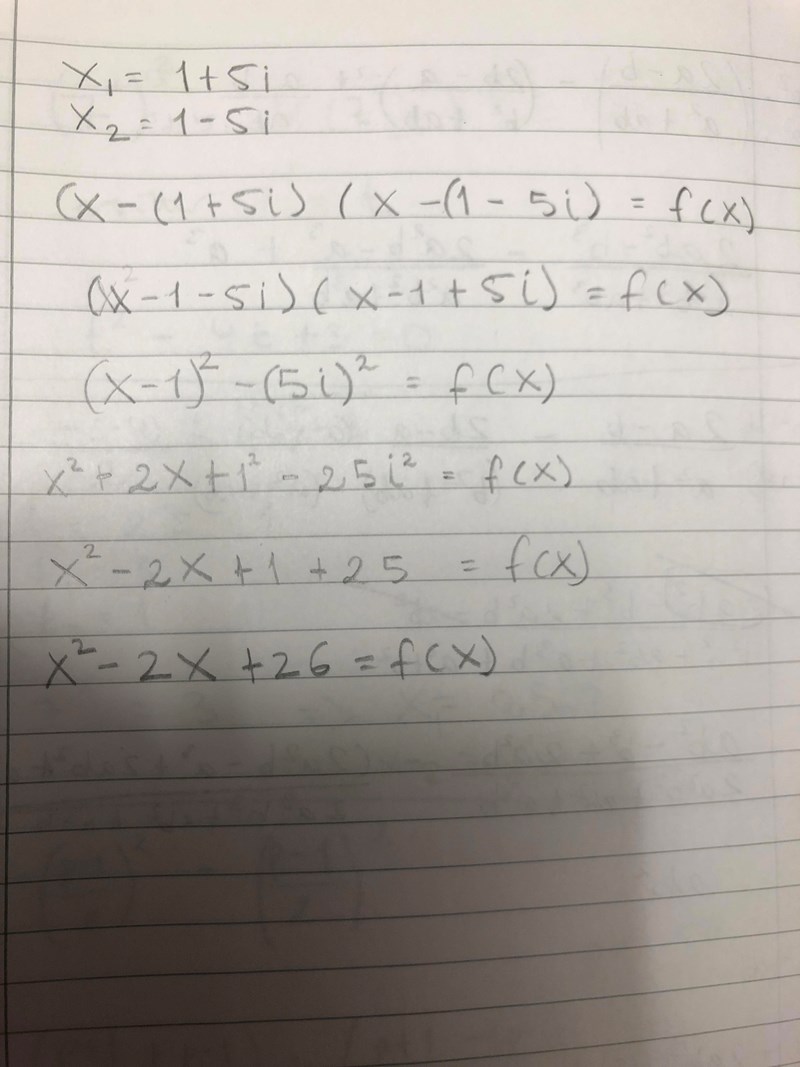 x₁ = 1+5i
x₂ = 1-5i
(x-(1+5i) (x-(1-5i) = f(x)
(x-1-5i)(x-1+5i) = f(x)
(x-1)² - (5i)² = f(x)
x² + 2x+1² - 25i² = f(x)
x² - 2x + 1 + 25 = f(x)
x² - 2x + 26 = f(x)